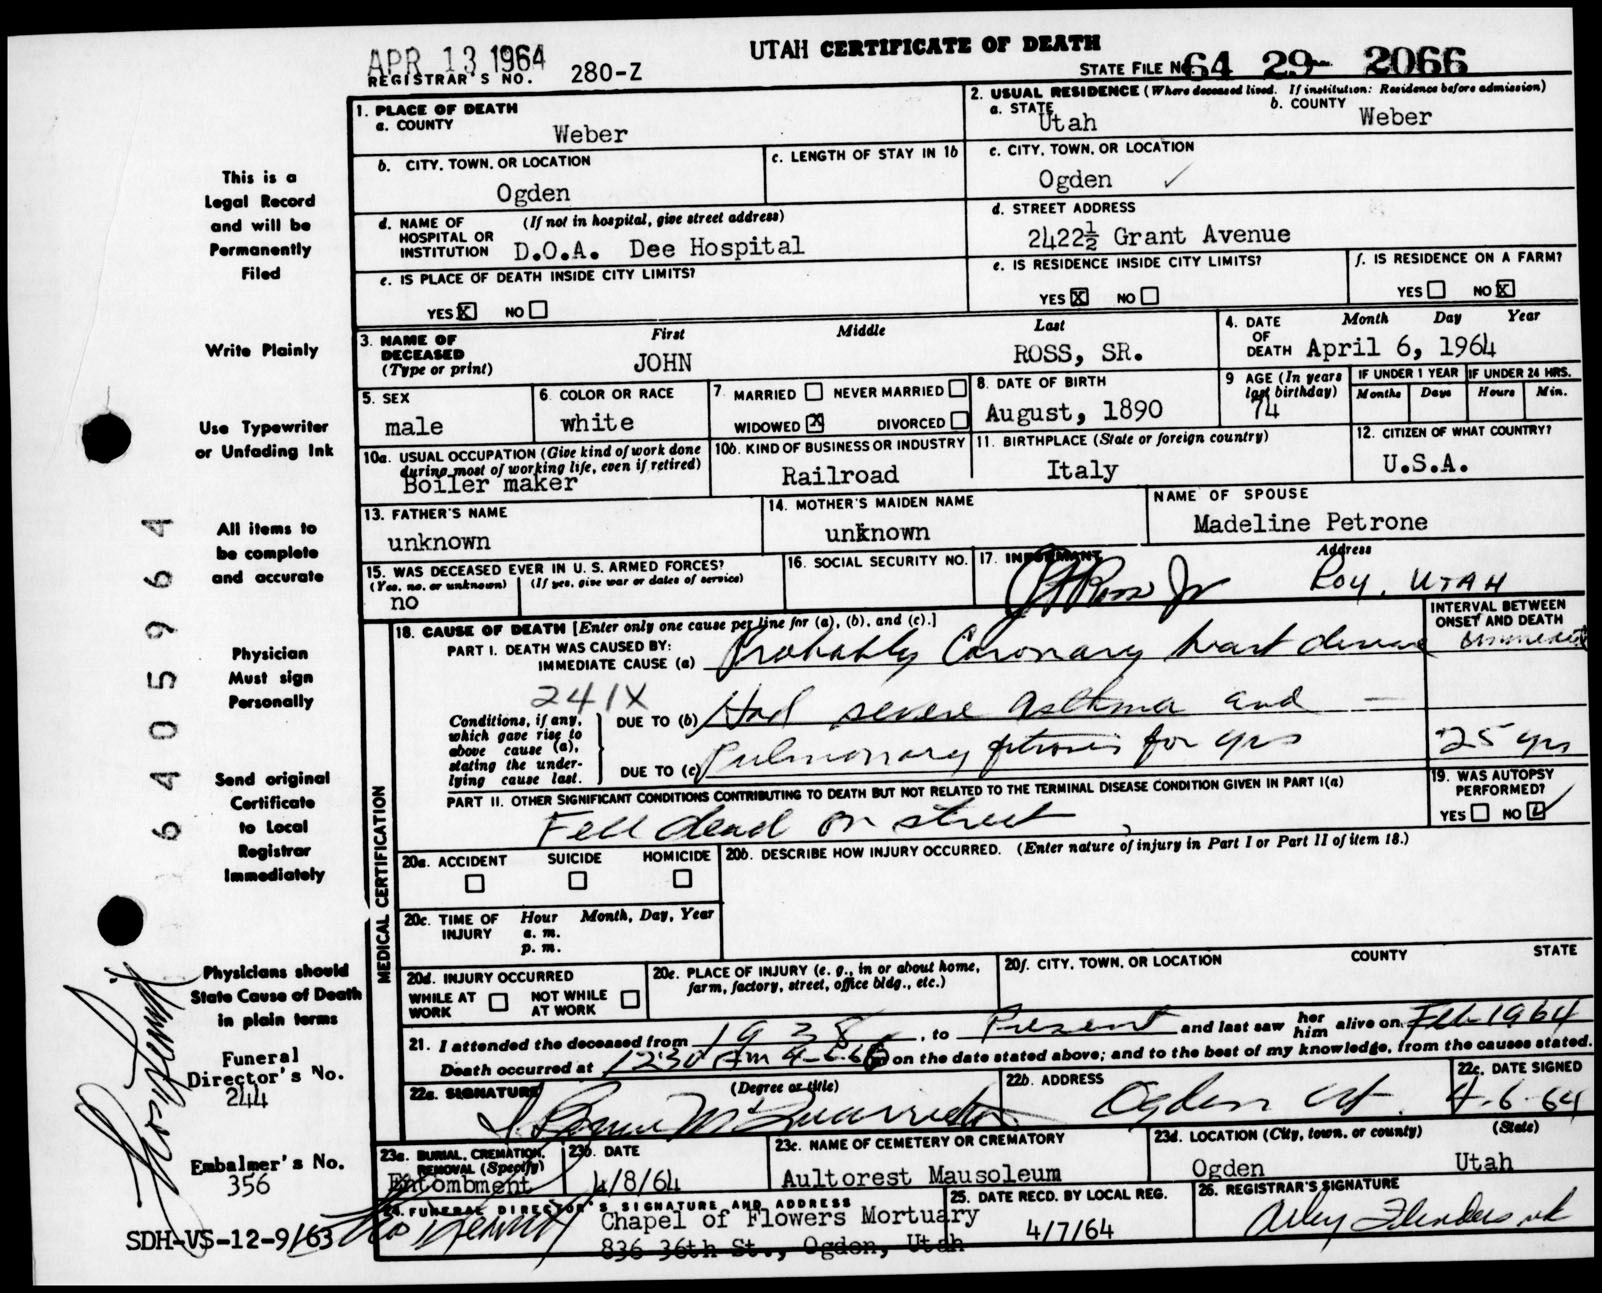 APR 13 1964
UTAH CERTIFICATE OF DEATH
REGISTRAR'S NO. 280-Z
STATE FILE NO. 64 29- 2066
This is a
Legal Record
and will be
Permanently
Filed
Write Plainly
Use Typewriter
or Unfading Ink
All items to
be complete
and accurate
Physician
Must sign
Personally
Send original
Certificate
to Local
Registrar
Immediately
Physicians should
State Cause of Death
in plain terms
Funeral
Director's No.
244
Embalmer's No.
356
SDH-VS-12-9/63
6405964
1. PLACE OF DEATH
a. COUNTY
Weber
2. USUAL RESIDENCE (Where deceased lived. If institution: Residence before admission)
a. STATE Utah
b. COUNTY Weber
b. CITY, TOWN, OR LOCATION
Ogden
c. LENGTH OF STAY IN 1b
c. CITY, TOWN, OR LOCATION
Ogden ✓
d. NAME OF HOSPITAL OR INSTITUTION (If not in hospital, give street address)
D.O.A. Dee Hospital
d. STREET ADDRESS
2422½ Grant Avenue
e. IS PLACE OF DEATH INSIDE CITY LIMITS?
YES X NO
e. IS RESIDENCE INSIDE CITY LIMITS?
YES X NO
f. IS RESIDENCE ON A FARM?
YES NO X
3. NAME OF DECEASED (Type or print)
First Middle Last
JOHN ROSS, SR.
4. DATE OF DEATH Month Day Year
April 6, 1964
5. SEX
male
6. COLOR OR RACE
white
7. MARRIED NEVER MARRIED
WIDOWED X DIVORCED
8. DATE OF BIRTH
August, 1890
9 AGE (In years last birthday)
74
IF UNDER 1 YEAR
Months Days
IF UNDER 24 HRS.
Hours Min.
10a. USUAL OCCUPATION (Give kind of work done during most of working life, even if retired)
Boiler maker
10b. KIND OF BUSINESS OR INDUSTRY
Railroad
11. BIRTHPLACE (State or foreign country)
Italy
12. CITIZEN OF WHAT COUNTRY?
U.S.A.
13. FATHER'S NAME
unknown
14. MOTHER'S MAIDEN NAME
unknown
NAME OF SPOUSE
Madeline Petrone
15. WAS DECEASED EVER IN U. S. ARMED FORCES?
(Yes, no, or unknown) (If yes, give war or dates of service)
no
16. SOCIAL SECURITY NO.
17. INFORMANT Address
Ross Jr Roy, UTAH
MEDICAL CERTIFICATION
18. CAUSE OF DEATH [Enter only one cause per line for (a), (b), and (c).]
INTERVAL BETWEEN ONSET AND DEATH
PART I. DEATH WAS CAUSED BY:
IMMEDIATE CAUSE (a) Probably Coronary heart disease
241X
Conditions, if any, which gave rise to above cause (a), stating the underlying cause last.
DUE TO (b) Had severe asthma and
DUE TO (c) pulmonary fibrosis for yrs 25 yrs
PART II. OTHER SIGNIFICANT CONDITIONS CONTRIBUTING TO DEATH BUT NOT RELATED TO THE TERMINAL DISEASE CONDITION GIVEN IN PART I(a)
Fell dead on street
19. WAS AUTOPSY PERFORMED?
YES NO ✓
20a. ACCIDENT SUICIDE HOMICIDE
20b. DESCRIBE HOW INJURY OCCURRED. (Enter nature of injury in Part I or Part II of item 18.)
20c. TIME OF INJURY Hour Month, Day, Year
a. m.
p. m.
20d. INJURY OCCURRED
WHILE AT WORK NOT WHILE AT WORK
20e. PLACE OF INJURY (e. g., in or about home, farm, factory, street, office bldg., etc.)
20f. CITY, TOWN, OR LOCATION COUNTY STATE
21. I attended the deceased from 1938, to Present and last saw her him alive on Feb 1964
Death occurred at 1230 AM on the date stated above; and to the best of my knowledge, from the causes stated.
22a. SIGNATURE (Degree or title)
22b. ADDRESS
Ogden Ut.
22c. DATE SIGNED
4-6-64
23a. BURIAL, CREMATION, REMOVAL (Specify)
Entombment
23b. DATE
4/8/64
23c. NAME OF CEMETERY OR CREMATORY
Aultorest Mausoleum
23d. LOCATION (City, town, or county) (State)
Ogden Utah
24. FUNERAL DIRECTOR'S SIGNATURE AND ADDRESS
Chapel of Flowers Mortuary
836 36th St., Ogden, Utah
25. DATE RECD. BY LOCAL REG.
4/7/64
26. REGISTRAR'S SIGNATURE